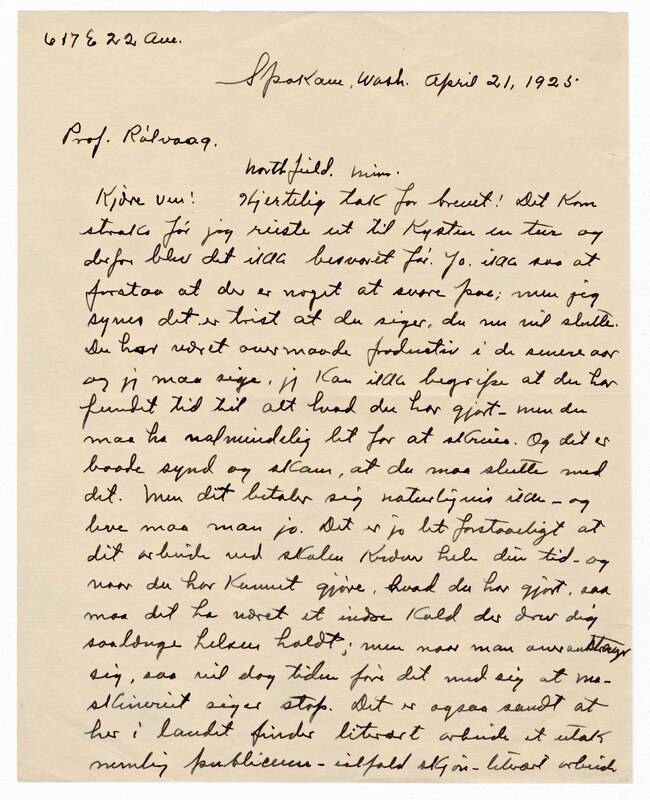 617 E 22 Ave.
Spokane, Wash. April 21, 1925
Prof. Rölvaag,
Northfield, Minn.
Kjære ven! Hjertelig tak for brevet! Det kom
straks før jeg reiste ut til Kysten en tur og
derfor blev det ikke besvaret før. Jo, ikke saa at
forstaa at der er noget at svare paa; men jeg
synes det er trist at du siger, du nu vil slutte.
Du har været overmaade productiv i de senere aar
og jeg maa sige, jeg kan ikke begripe at du har
fundet tid til alt hvad du har gjort – men du
maa ha ualmindelig let for at skrive. Og det er
baade synd og skam, at du maa slutte med
det. Men det betaler sig naturligvis ikke – og
leve maa man jo. Det er jo let forstaaeligt at
dit arbeide ved skolen kræver hele din tid – og
naar du har kunnet gjøre, hvad du har gjort, saa
maa det ha været et indre kald der drev dig
saalænge helsen holdt; men naar man overanstrænger
sig, saa vil dog tiden føre det med sig at ma-
skineriet siger stop. Det er ogsaa sandt at
her i landet finder literært arbeide et utak
nemlig publicum – ialfald skjøn-literært arbeide